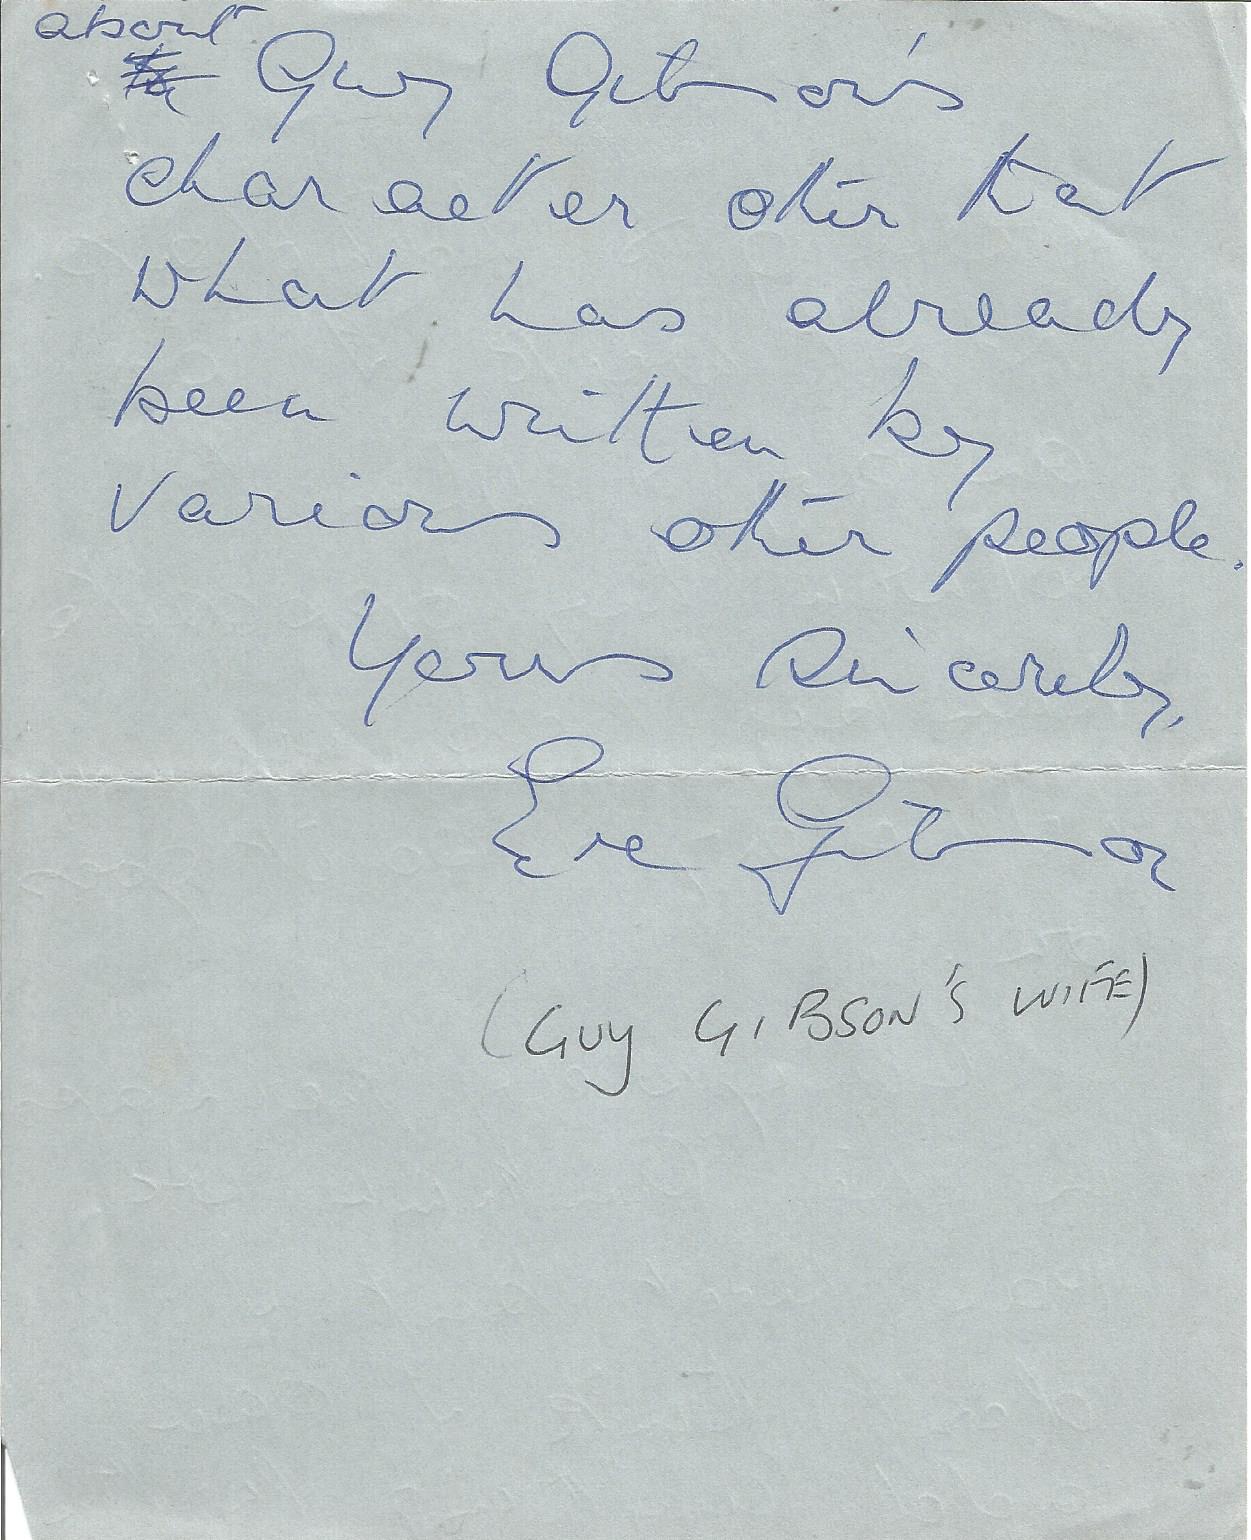 about
Guy Gibson's
character other that
what has already
been written by
various other people.
Yours sincerely,
Eve Gibson
(GUY GIBSON'S WIFE)